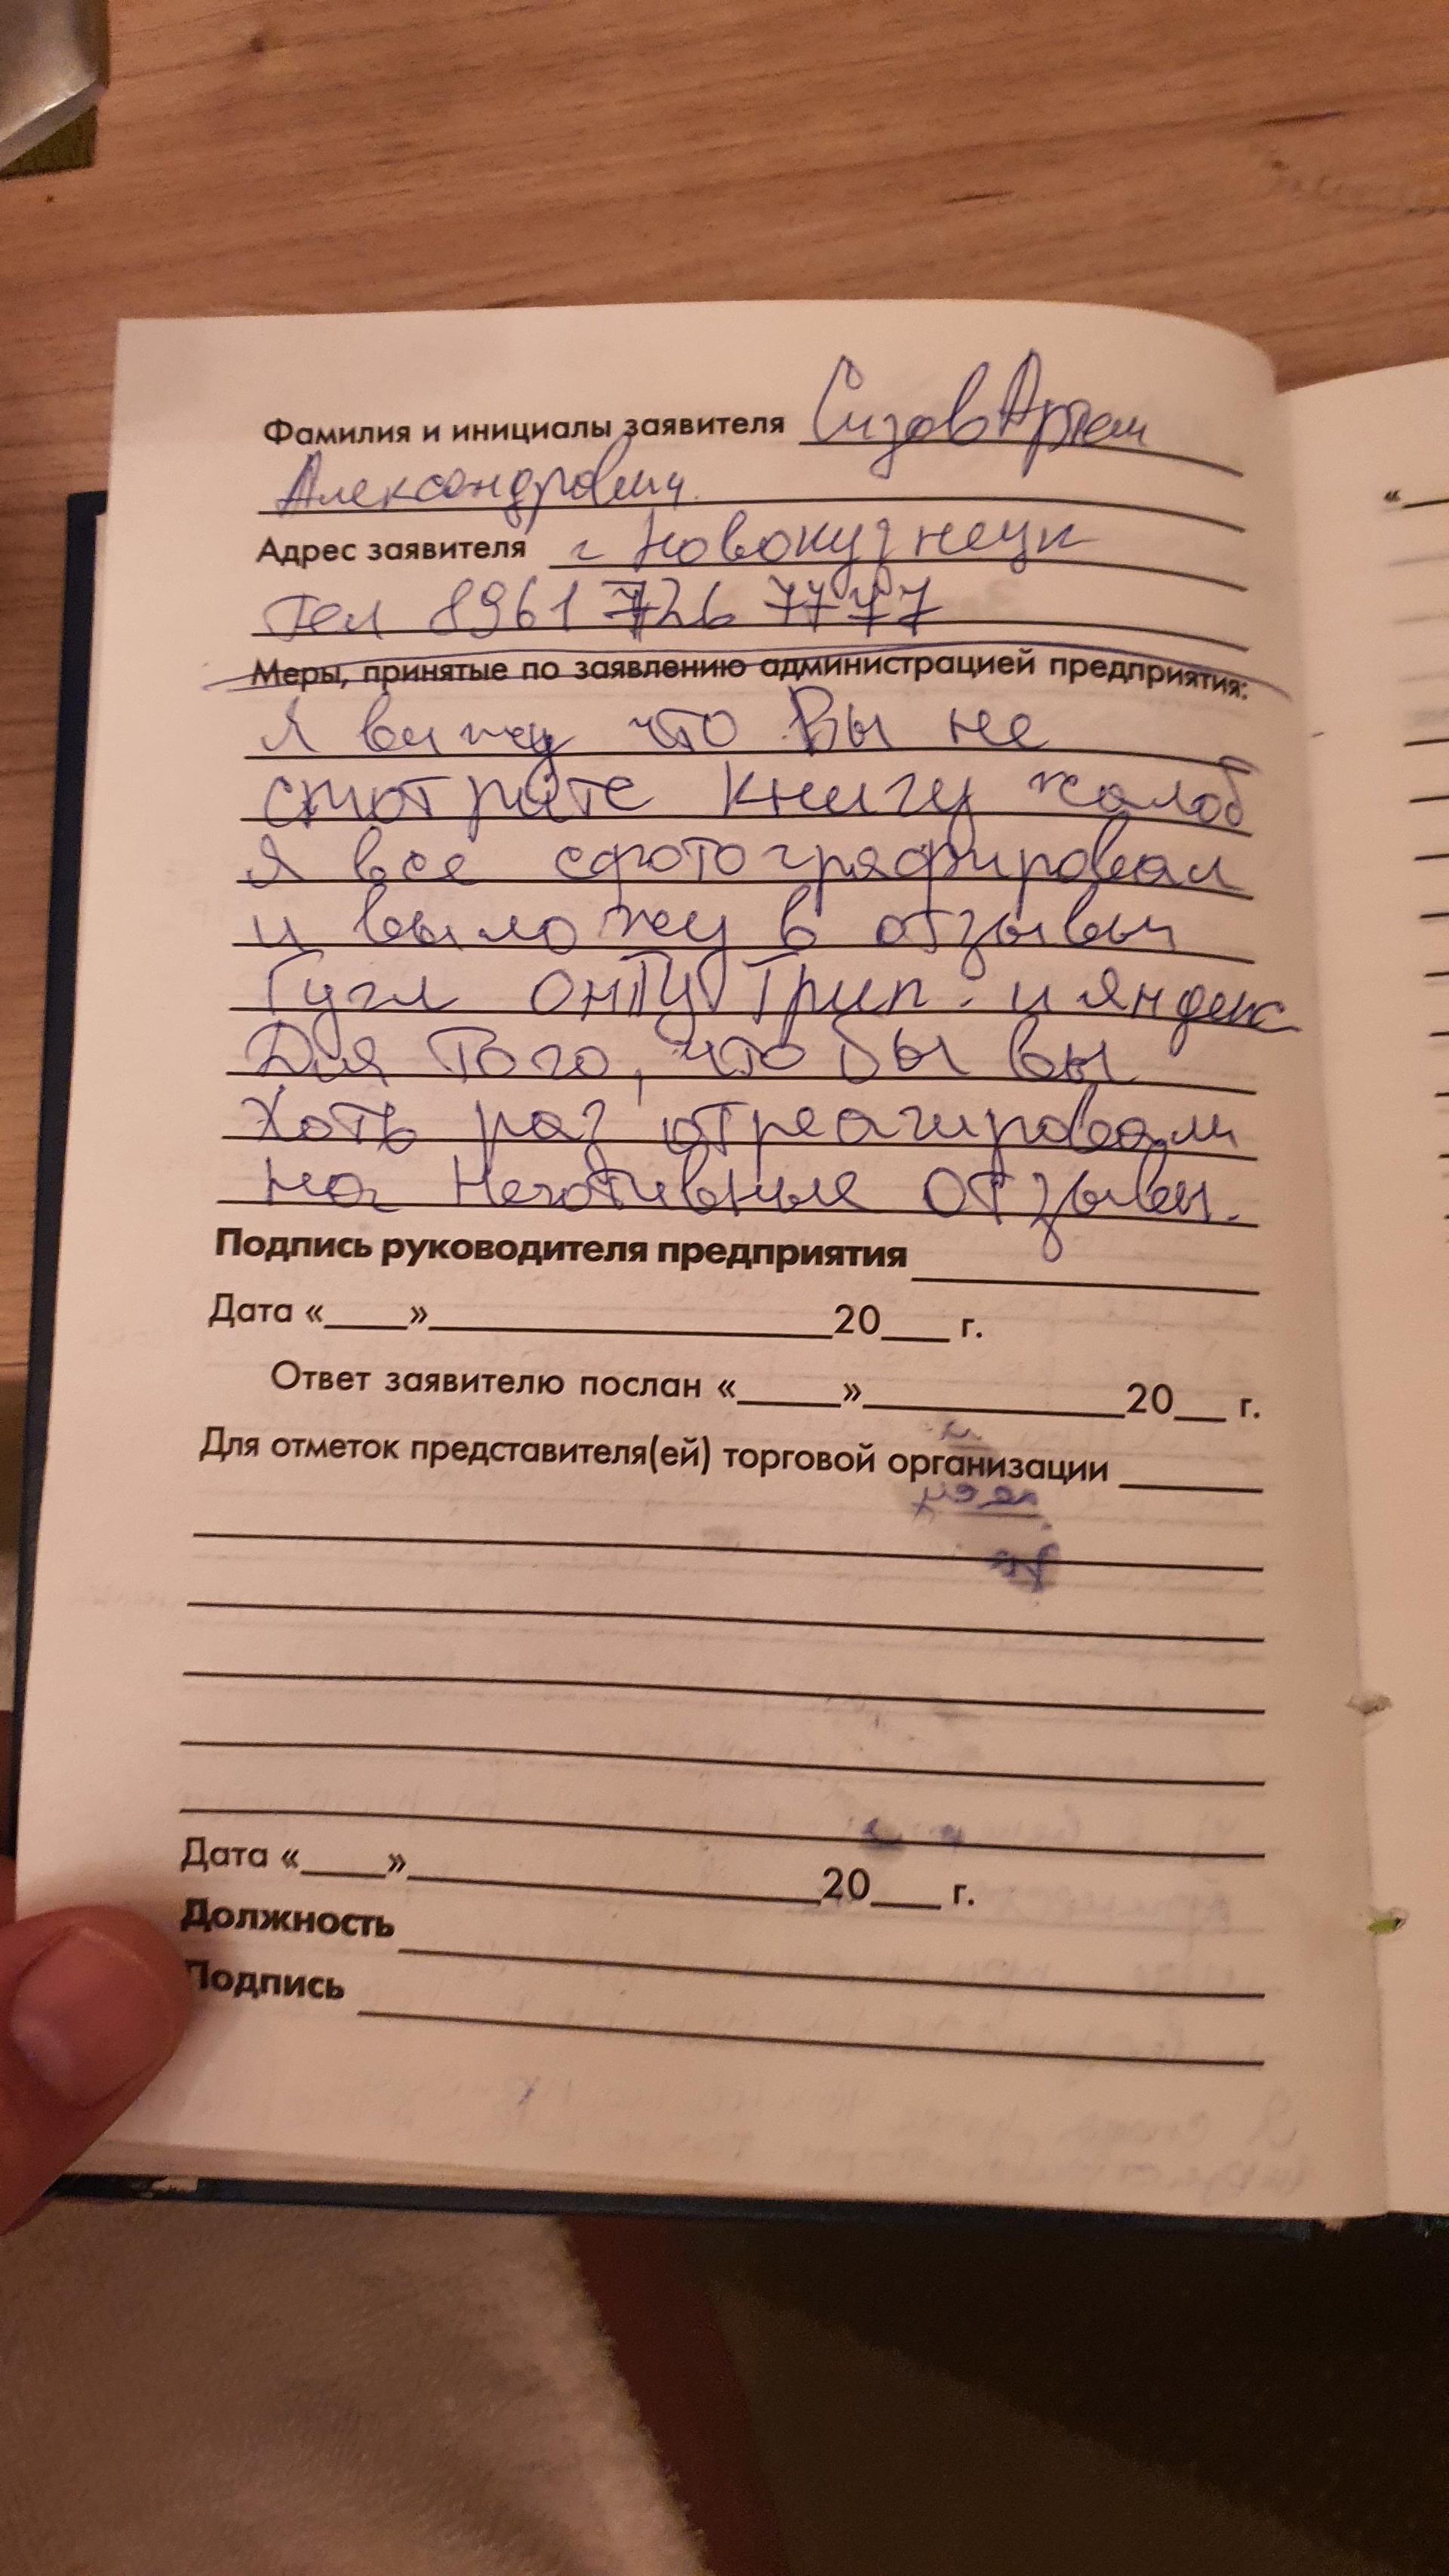 Фамилия и инициалы заявителя Сизов Артем
Александрович.
Адрес заявителя г Новокузнецк
Тел 8961 726 7777
Меры, принятые по заявлению администрацией предприятия:
Я вижу что Вы не
смотрите книгу жалоб
Я все сфотографировал
и выложу в отзывы
Гугл онТу Трип. и яндекс
Для того, что бы вы
Хоть раз отреагировали
на Негативные отзывы.
Подпись руководителя предприятия
Дата «____»____20___ г.
Ответ заявителю послан «____»____20___ г.
Для отметок представителя(ей) торговой организации
Дата «____»____20___ г.
Должность
Подпись